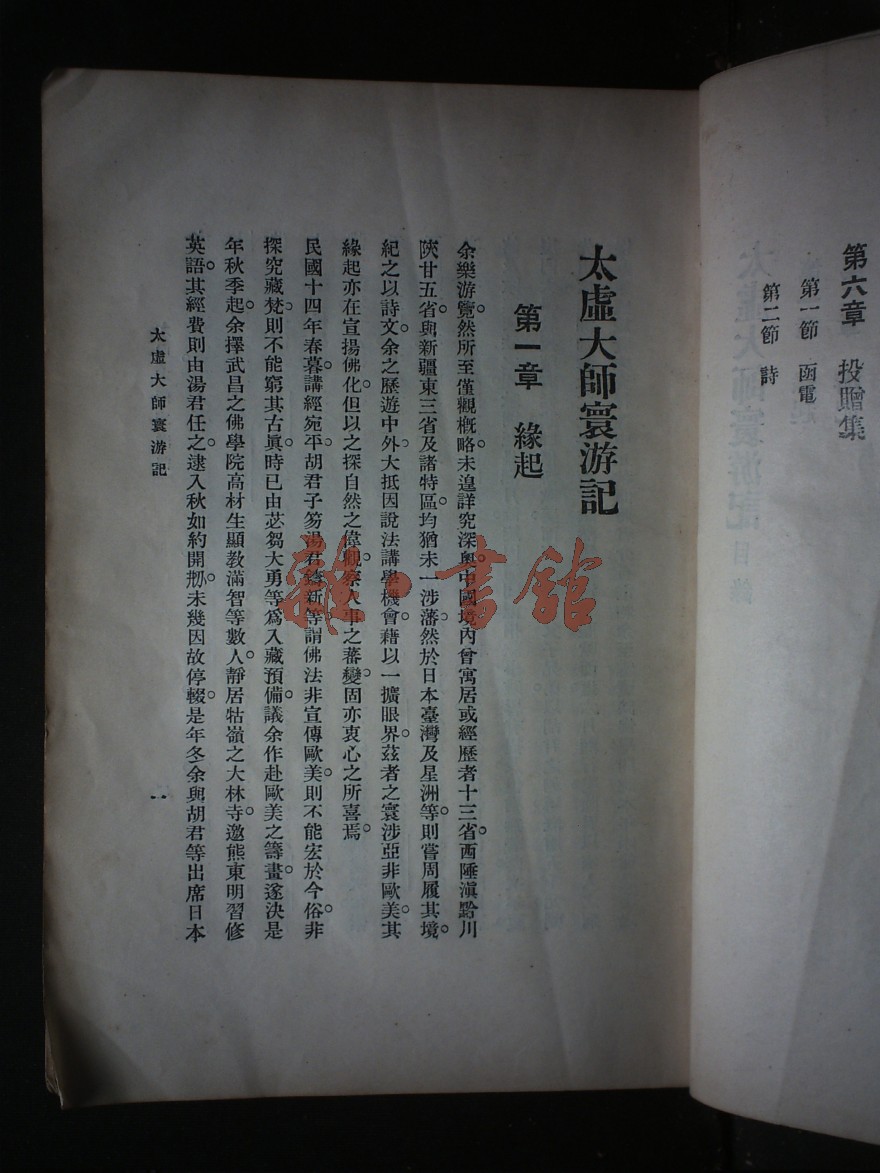 第六章　投贈集
第一節　函電
第二節　詩
太虛大師寰游記
第一章　緣起
余樂游覽。然所至僅觀槪略。未遑詳究深奧。中國境內曾寓居或經歷者十三省。西陲滇黔川
陝甘五省。與新疆東三省及諸特區。均猶未一涉藩。然於日本臺灣及星洲等。則嘗周履其境。
紀之以詩文。余之歷遊中外。大抵因說法講學機會。藉以一擴眼界。茲者之寰涉亞非歐美。其
緣起亦在宣揚佛化。但以之探自然之偉觀。察人事之蕃變。固亦衷心之所喜焉。
民國十四年春暮。講經宛平。胡君子笏湯君鑄新等。謂佛法非宣傳歐美。則不能宏於今俗。非
探究藏梵。則不能窮其古眞。時已由苾芻大勇等爲入藏預備。議余作赴歐美之籌畫。遂決是
年秋季起。余擇武昌之佛學院高材生顯教滿智等數人。靜居牯嶺之大林寺。邀熊東明習修
英語。其經費則由湯君任之。逮入秋如約開刱。未幾因故停輟。是年冬余與胡君等出席日本
太虛大師寰游記
一
雜·書館